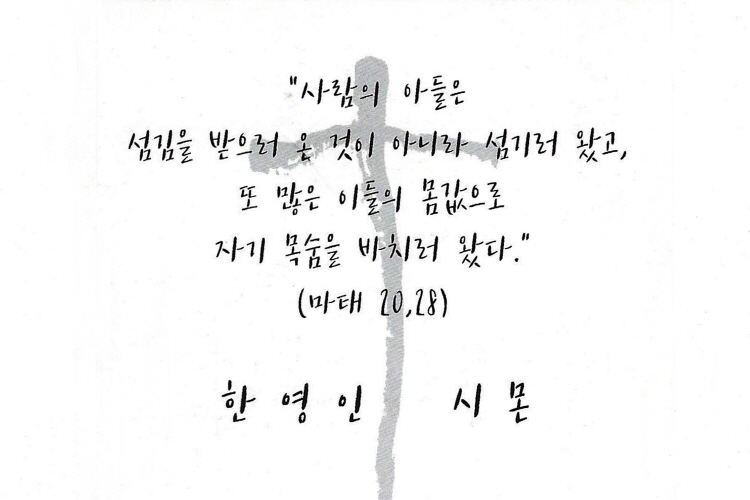 "사람의 아들은
섬김을 받으러 온 것이 아니라 섬기러 왔고,
또 많은 이들의 몸값으로
자기 목숨을 바치러 왔다."
(마태 20,28)
한영인 시몬